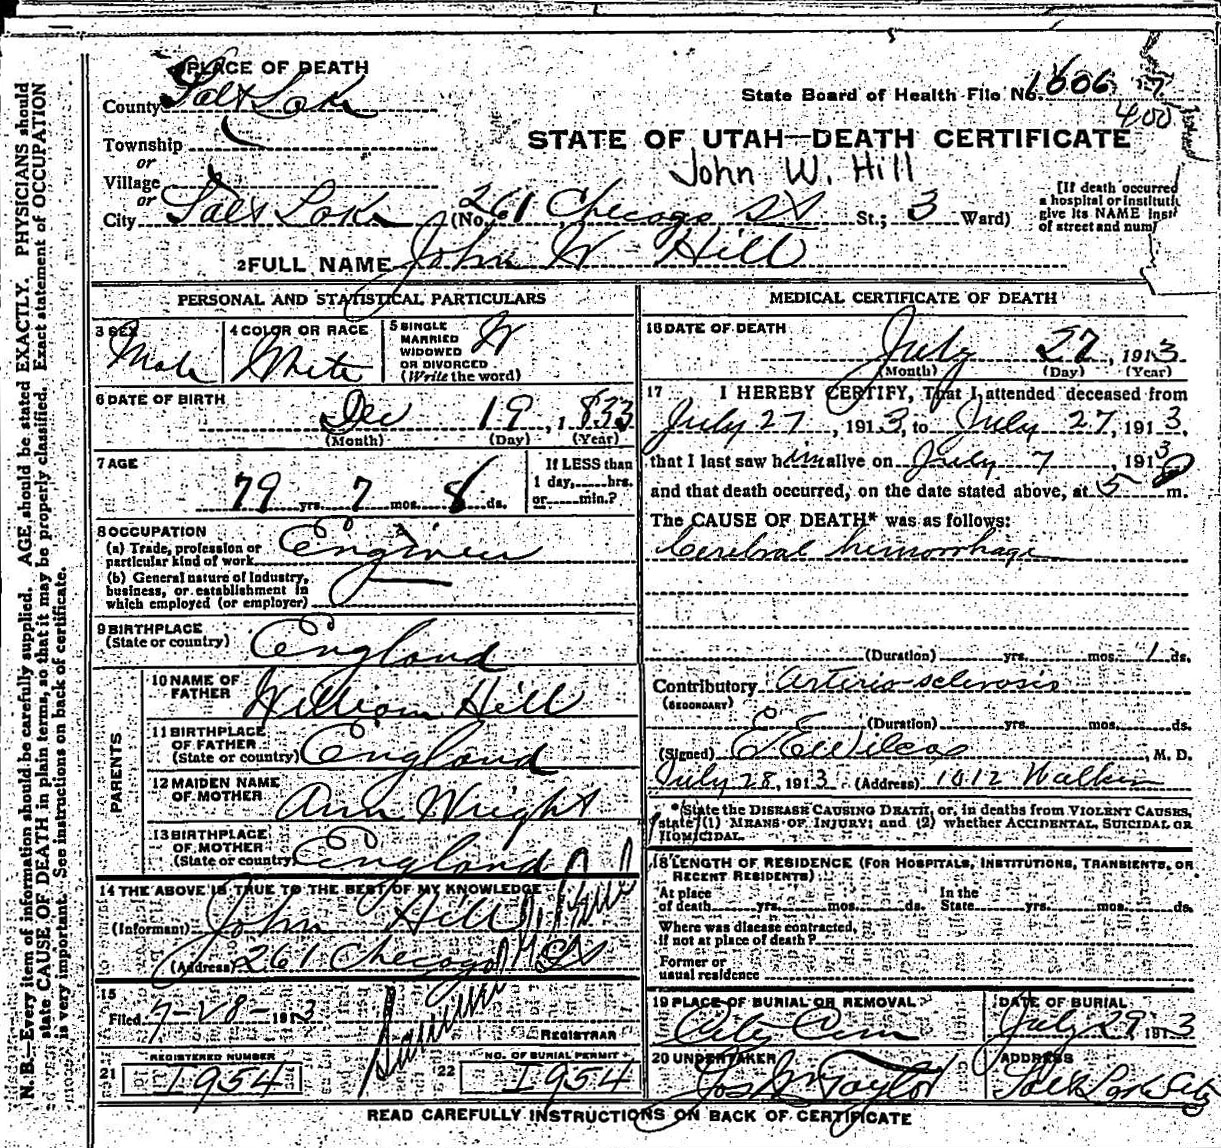 PLACE OF DEATH
County Salt Lake
State Board of Health File No. 1606
400
STATE OF UTAH—DEATH CERTIFICATE
John W. Hill
Township
or
Village
or
City Salt Lake (No. 261 Checago St St.; 3 Ward)
[If death occurred
a hospital or instituti
give its NAME inst
of street and num
2 FULL NAME John W Hill
PERSONAL AND STATISTICAL PARTICULARS
3 SEX Male
4 COLOR OR RACE White
5 SINGLE MARRIED WIDOWED OR DIVORCED (Write the word) W
6 DATE OF BIRTH
Dec 19, 1833
(Month) (Day) (Year)
7 AGE
79 yrs. 7 mos. 8 ds.
If LESS than
1 day, hrs.
or min.?
8 OCCUPATION
(a) Trade, profession or
particular kind of work Engineer
(b) General nature of industry,
business, or establishment in
which employed (or employer)
9 BIRTHPLACE
(State or country) England
PARENTS
10 NAME OF
FATHER William Hill
11 BIRTHPLACE
OF FATHER
(State or country) England
12 MAIDEN NAME
OF MOTHER Ann Wright
13 BIRTHPLACE
OF MOTHER
(State or country) England
14 THE ABOVE IS TRUE TO THE BEST OF MY KNOWLEDGE
(Informant) John Hill
(Address) 261 Checago St
15
Filed 7-28-1913
REGISTRAR
REGISTERED NUMBER
21 1954
NO. OF BURIAL PERMIT
22 1954
MEDICAL CERTIFICATE OF DEATH
16 DATE OF DEATH
July 27, 1913
(Month) (Day) (Year)
17 I HEREBY CERTIFY, That I attended deceased from
July 27, 1913, to July 27, 1913,
that I last saw him alive on July 7, 1913
and that death occurred, on the date stated above, at 5 m.
The CAUSE OF DEATH* was as follows:
Cerebral hemorrhage
(Duration) yrs. mos. 1 ds.
Contributory Arterio-sclerosis
(SECONDARY)
(Duration) yrs. mos. ds.
(Signed) E E Wilcox, M. D.
July 28, 1913 (Address) 1012 Walker
*State the DISEASE CAUSING DEATH, or, in deaths from VIOLENT CAUSES,
state (1) MEANS OF INJURY; and (2) whether ACCIDENTAL, SUICIDAL OR
HOMICIDAL.
18 LENGTH OF RESIDENCE (FOR HOSPITALS, INSTITUTIONS, TRANSIENTS, OR
RECENT RESIDENTS)
At place
of death yrs. mos. ds.
In the
State yrs. mos. ds.
Where was disease contracted,
if not at place of death?
Former or
usual residence
19 PLACE OF BURIAL OR REMOVAL
City Cem
DATE OF BURIAL
July 29 1913
20 UNDERTAKER
Jos Wm Taylor
ADDRESS
Salt Lake City
READ CAREFULLY INSTRUCTIONS ON BACK OF CERTIFICATE
N. B.—Every item of information should be carefully supplied. AGE should be stated EXACTLY. PHYSICIANS should
state CAUSE OF DEATH in plain terms, so that it may be properly classified. Exact statement of OCCUPATION
is very important. See instructions on back of certificate.